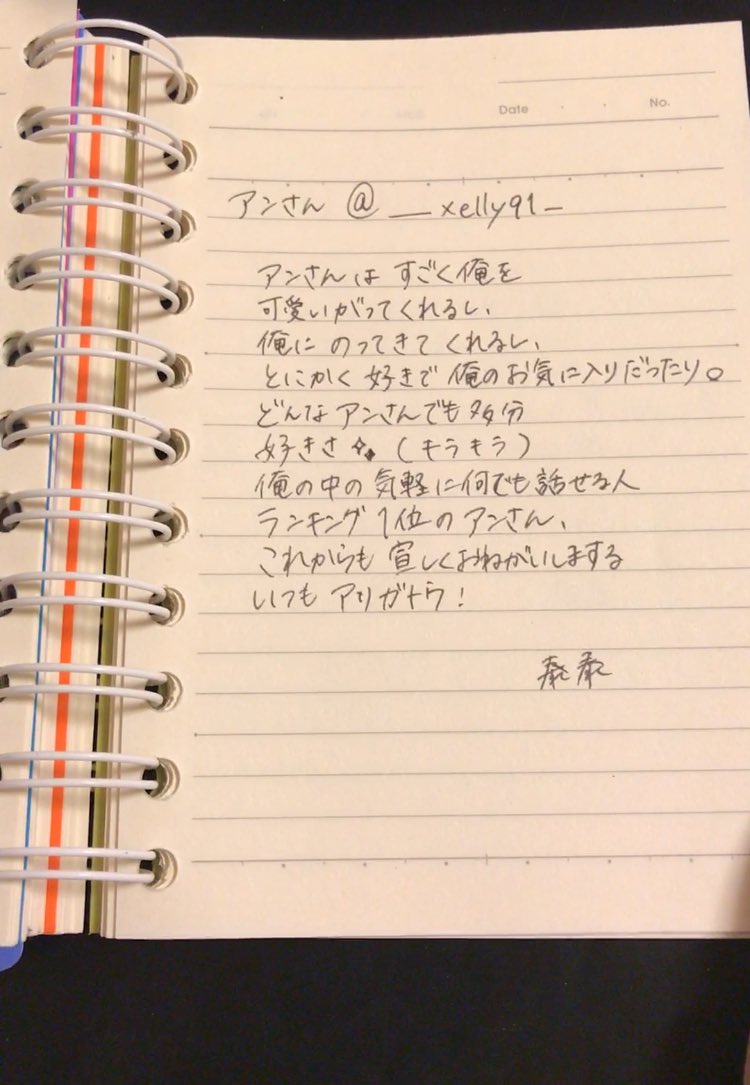 Date
No.
アンさん @__xelly91_
アンさんは すごく俺を
可愛いがってくれるし、
俺に のってきて くれるし、
とにかく 好きで 俺のお気に入りだったり。
どんな アンさんでも 多分
好きさ✨(キラキラ)
俺の中の 気軽に何でも話せる人
ランキング 1位の アンさん、
これからも 宜しくおねがいしまする
いつも アリガトウ!